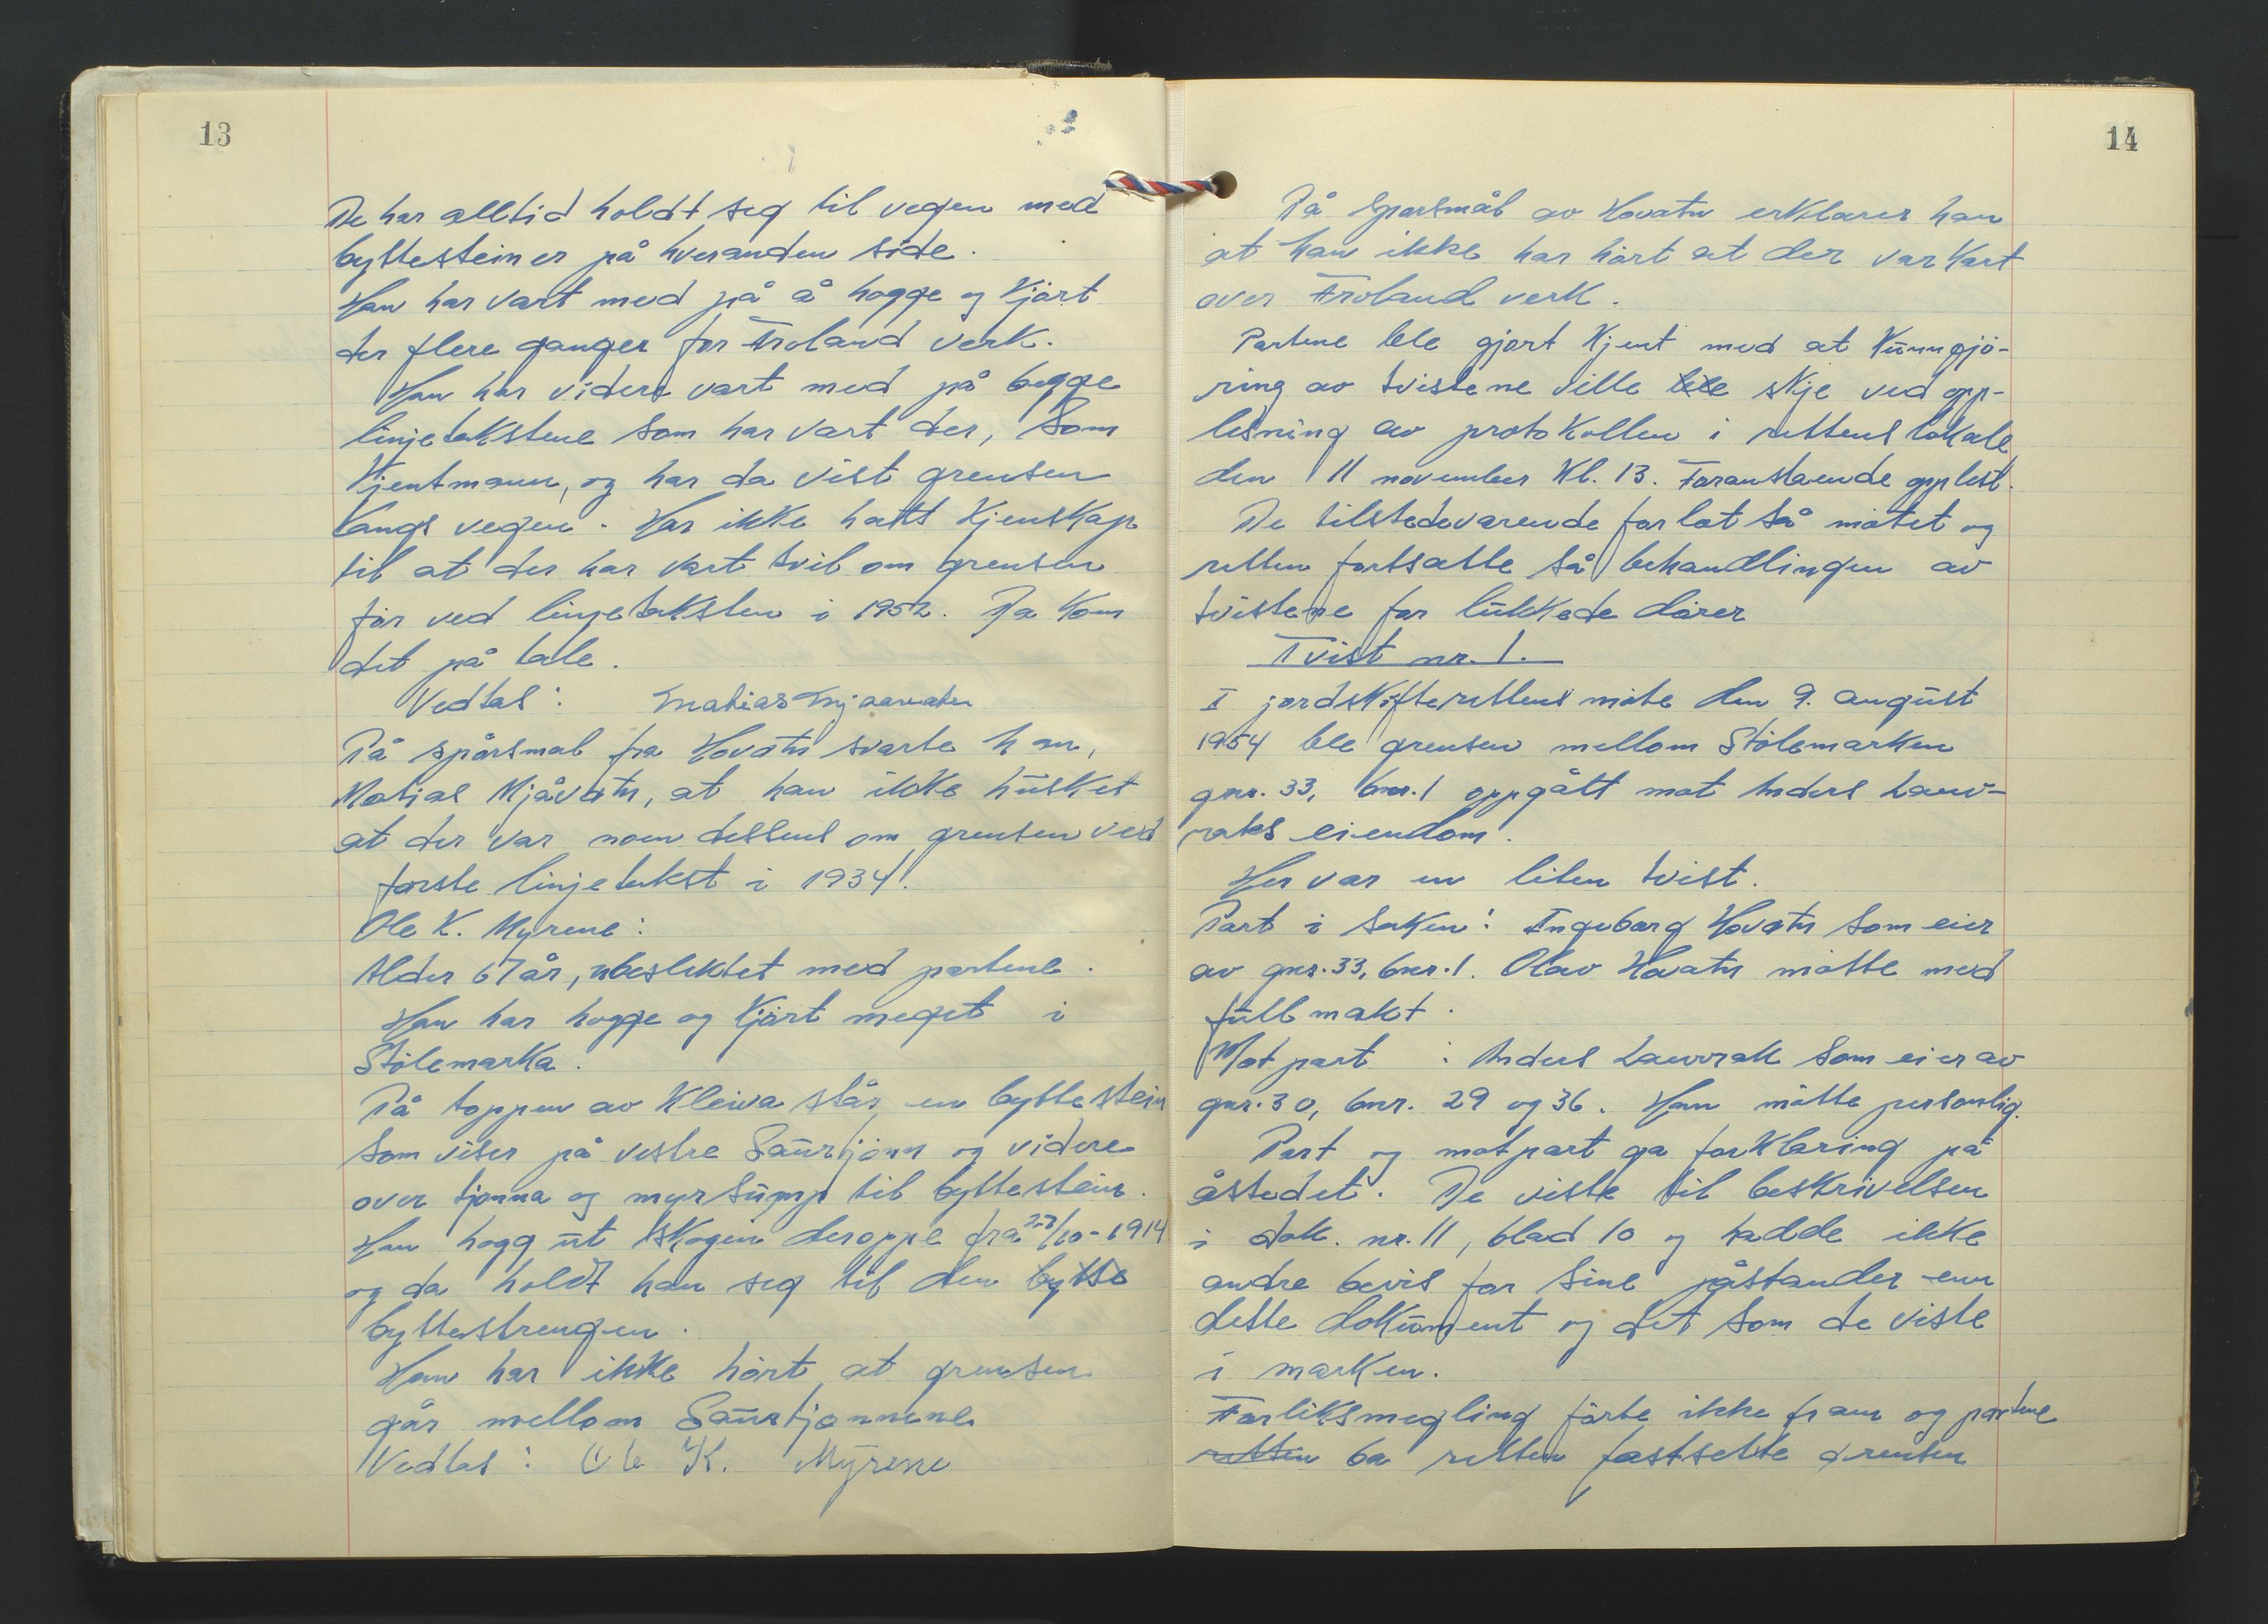 13
De har alltid holdt seg til vegen med
byttesteiner på hveranden side.
Han har vært med på å hogge og kjørt
der flere ganger for Froland verk.
Han har videre vært med på begge
linjetakstene som har vært der, som
kjentmann, og har da vist grensen
langs vegen. Har ikke hatt kjenskap
til at der har vært tvil om grensen
før ved linjetaksten i 1952. Da kom
det på tale.
Vedtas: Matias Mjaavatn
På spørsmål fra Hovatn svarte han,
Matias Mjåvatn, at han ikke husket
at der var noen dessens om grensen ved
første linjetakst i 1934.
Ole K. Myrene:
Alder 67 år, ubeslektet med partene.
Han har hogge og kjørt meget i
Stølemarka.
På toppen av Kleiva står en byttestein
som viser på vestre Saurtjønn og videre
over tjønna og myrsump til byttestein.
Han hogg ut skogen deroppe fra 27/10-1914
og da holdt han seg til den bytte
byttestrengen.
Han har ikke hørt at grensen
går mellom Saurtjønnene
Vedtas: Ole K. Myrene
14
På spørsmål av Hovatn erklærer han
at han ikke har hørt at der var kart
over Froland verk.
Partene ble gjort kjent med at kunngjø-
ring av tvistene ville ble skje ved opp-
lesning av protokollen i rettens lokale
den 11 november kl. 13. Foranstående opplest.
De tilstedeværende forlot så møtet og
retten fortsatte så behandlingen av
tvistene for lukkede dører
Tvist nr. 1.
I jordskifterettens møte den 9. august
1954 ble grensen mellom Stølemarken
gnr. 33, bnr. 1 oppgått mot Anders Lauv-
raks eiendom.
Her var en liten tvist.
Part i saken: Ingeborg Hovatn som eier
av gnr. 33, bnr. 1. Olav Hovatn møtte med
fullmakt.
Motpart : Anders Lauvrak som eier av
gnr. 30, bnr. 29 og 36. Han møtte personlig.
Part og motpart ga forklaring på
åstedet. De viste til beskrivelsen
i dok. nr. 11, blad 10 og hadde ikke
andre bevis for sine påstander enn
dette dokument og det som de viste
i marken.
Forliksmegling førte ikke fram og partene
retten ba retten fastsette grensen